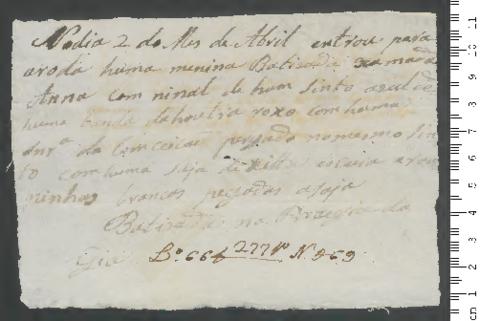 No dia 2 do Mes de Abril entrou para
aroda huma menina Batizada xamada
Anna com sinal de hum sinto azul de
huma banda dahoutra roxo com huma
Snrª da Conceicaõ pregada no mesmo sin
to com huma saja de xilta escura e rou
minhas brancas pegadas asaja
Batizada na Fraegia da
Gia Lº 664 277 Nº 969